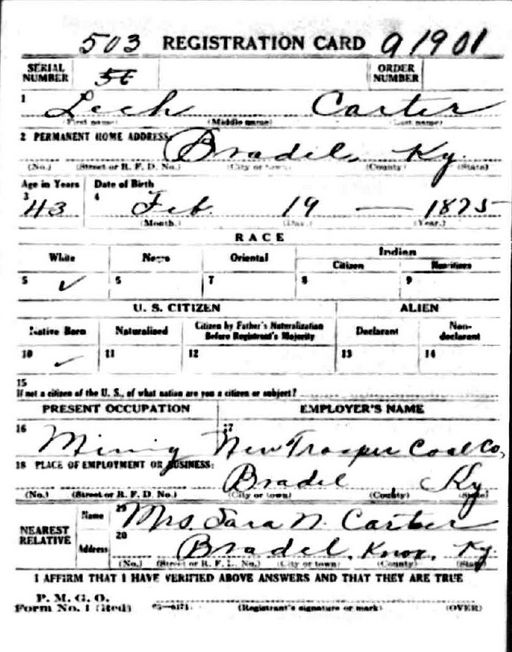 503 REGISTRATION CARD A1901
SERIAL NUMBER 56 ORDER NUMBER
1 Leeh Carter
(First name) (Middle name) (Last name)
2 PERMANENT HOME ADDRESS: Bradel, Ky
(No.) (Street or R. F. D. No.) (City or town) (County) (State)
Age in Years Date of Birth
3 43 4 Feb. 19 — 1875
(Month.) (Day.) (Year.)
RACE
White Negro Oriental Indian
Citizen Noncitizen
5 ✓ 6 7 8 9
U. S. CITIZEN ALIEN
Native Born Naturalized Citizen by Father's Naturalization Before Registrant's Majority Declarant Non-declarant
10 ✓ 11 12 13 14
15
If not a citizen of the U. S., of what nation are you a citizen or subject?
PRESENT OCCUPATION EMPLOYER'S NAME
16 Mining 17 New Trosper Coal Co,
18 PLACE OF EMPLOYMENT OR BUSINESS: Bradel Ky
(No.) (Street or R. F. D. No.) (City or town) (County) (State)
NEAREST RELATIVE Name 19 Mrs. Sara N. Carter
Address 20 Bradel, Knox, Ky.
(No.) (Street or R. F. D. No.) (City or town) (County) (State)
I AFFIRM THAT I HAVE VERIFIED ABOVE ANSWERS AND THAT THEY ARE TRUE
P. M. G. O.
Form No. 1 (Red) (Registrant's signature or mark) (OVER)